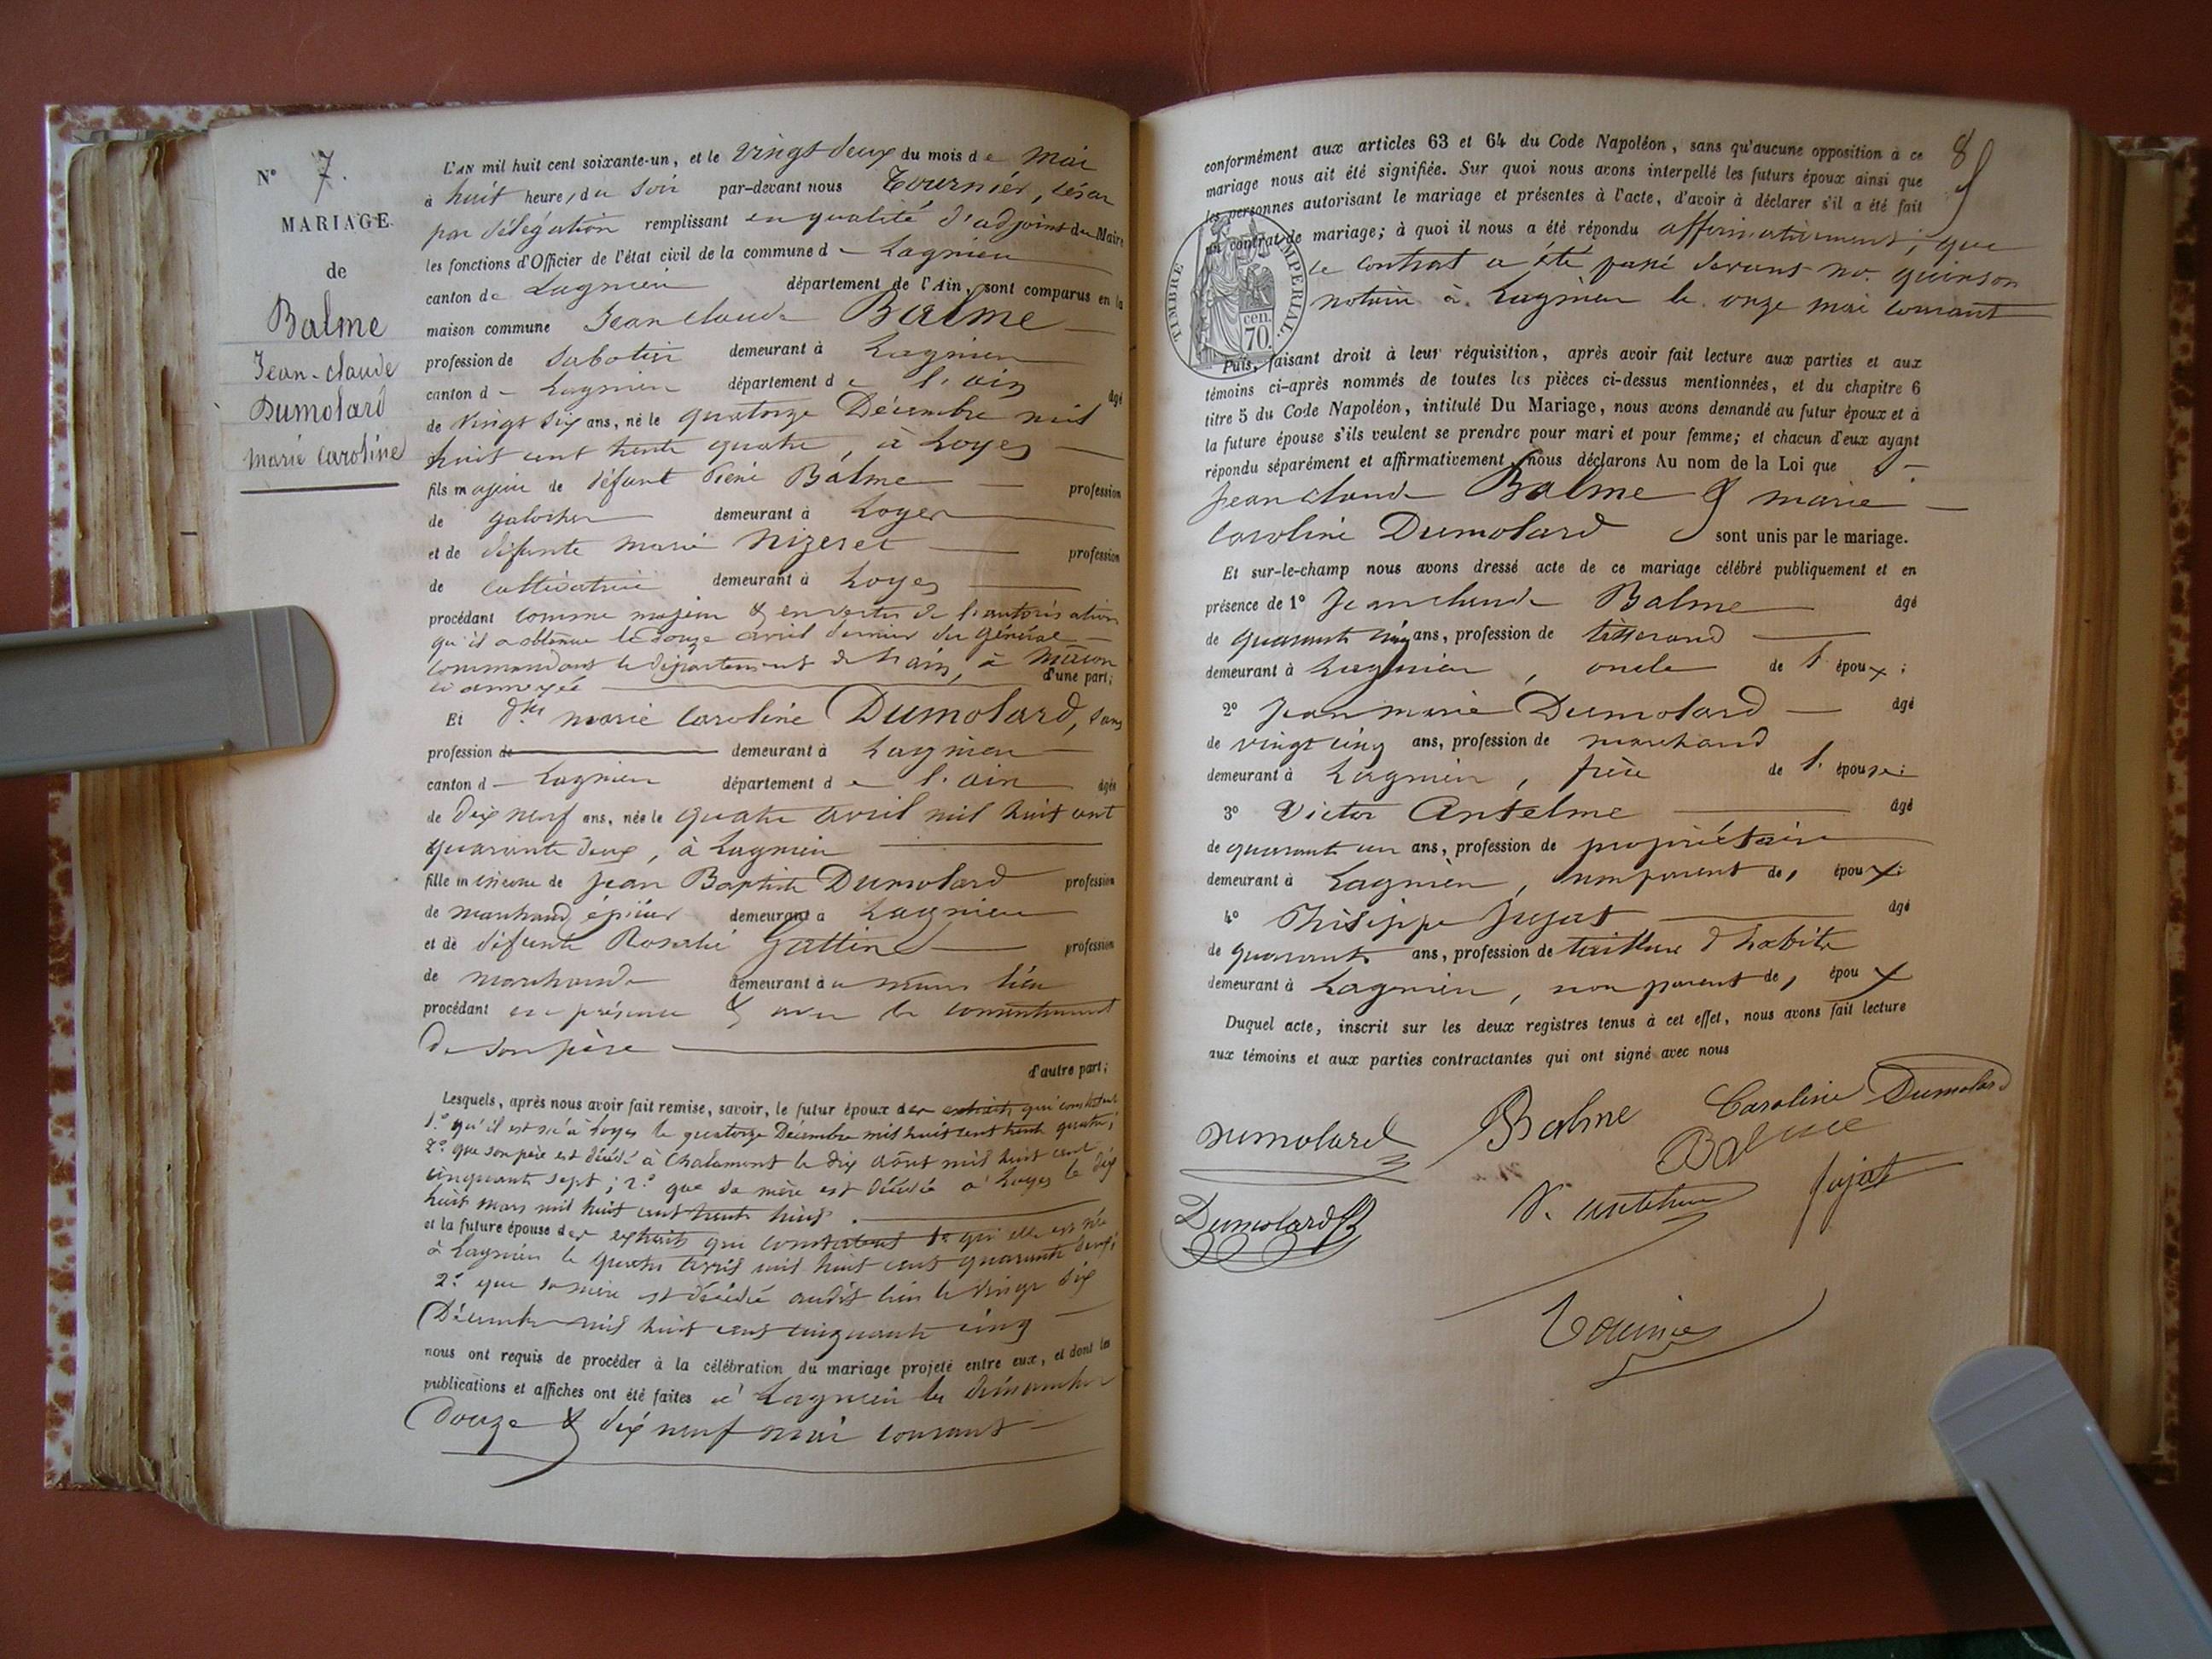 N° 7.
MARIAGE
de
Balme
Jean-claude
Dumolard
marie Caroline
L'AN mil huit cent soixante-un, et le vingt deux du mois de mai
à huit heures du soir par-devant nous Tournier, César
par délégation remplissant en qualité d'adjoint du Maire
les fonctions d'Officier de l'état civil de la commune d - Lagnieu
canton de Lagnieu département de l'Ain, sont comparus en la
maison commune Jean claude Balme
profession de sabotier demeurant à Lagnieu
canton d - Lagnieu département de l'ain âgé
de vingt six ans, né le quatorze Décembre mil
huit cent trente quatre, à Loyes
fils majeur de défunt Balme profession
de galocher demeurant à Loyes
et de défunte marie Nizeret profession
de cultivatrice demeurant à Loyes
procédant comme majeur & en vertu de l'autorisation
qu'il a obtenue le douze avril dernier du général
commandant le département de l'ain, à
ci annexée d'une part;
Et dlle marie Caroline Dumolard, sans
profession de demeurant à Lagnieu
canton d - Lagnieu département de l'ain âgée
de dix neuf ans, née le quatre avril mil huit cent
quarante deux, à Lagnieu
fille mineure de Jean Baptiste Dumolard profession
de marchand épicier demeurant à Lagnieu
et de défunte Rosalie Gattine profession
de marchande demeurant au même lieu
procédant en présence & avec le consentement
de son père
d'autre part;
Lesquels, après nous avoir fait remise, savoir, le futur époux des extraits qui constatent
1.° qu'il est né à Loyes le quatorze Décembre mil huit cent trente quatre;
2.° que son père est décédé à Chalamont le dix août mil huit cent
cinquante sept; 2.° que sa mère est décédée à Loyes le dix
huit mars mil huit cent trente huit.
et la future épouse des extraits qui constatent 1° qu'elle est née
à Lagnieu le quatre avril mil huit cent quarante deux;
2.° que sa mère est décédée audit lieu le vingt six
Décembre mil huit cent cinquante cinq
nous ont requis de procéder à la célébration du mariage projeté entre eux, et dont les
publications et affiches ont été faites à Lagnieu les dimanches
douze & dix neuf mai courant
8
conformément aux articles 63 et 64 du Code Napoléon, sans qu'aucune opposition à ce
mariage nous ait été signifiée. Sur quoi nous avons interpellé les futurs époux ainsi que
les personnes autorisant le mariage et présentes à l'acte, d'avoir à déclarer s'il a été fait
un contrat de mariage; à quoi il nous a été répondu affirmativement; que
le contrat a été passé devant quinson
notaire à Lagnieu le onze mai courant
TIMBRE IMPERIAL.
cen.
70.
Puis, faisant droit à leur réquisition, après avoir fait lecture aux parties et aux
témoins ci-après nommés de toutes les pièces ci-dessus mentionnées, et du chapitre 6
titre 5 du Code Napoléon, intitulé Du Mariage, nous avons demandé au futur époux et à
la future épouse s'ils veulent se prendre pour mari et pour femme; et chacun d'eux ayant
répondu séparément et affirmativement, nous déclarons Au nom de la Loi que
Jean claude Balme & marie
Caroline Dumolard sont unis par le mariage.
Et sur-le-champ nous avons dressé acte de ce mariage célébré publiquement et en
présence de 1° Jean claude Balme âgé
de quarante ans, profession de tisserand
demeurant à Lagnieu, oncle de l'époux;
2° Jean marie Dumolard âgé
de vingt cinq ans, profession de marchand
demeurant à Lagnieu, frère de l'épouse;
3° Victor Antelme âgé
de quarante un ans, profession de propriétaire
demeurant à Lagnieu, non parent des époux;
4° Philippe Jujat âgé
de quarante ans, profession de tailleur d'habits
demeurant à Lagnieu, non parent des époux
Duquel acte, inscrit sur les deux registres tenus à cet effet, nous avons fait lecture
aux témoins et aux parties contractantes qui ont signé avec nous
Dumolard Balme Caroline Dumolard
Balme
Dumolard V. antelme Jujat
Tournier